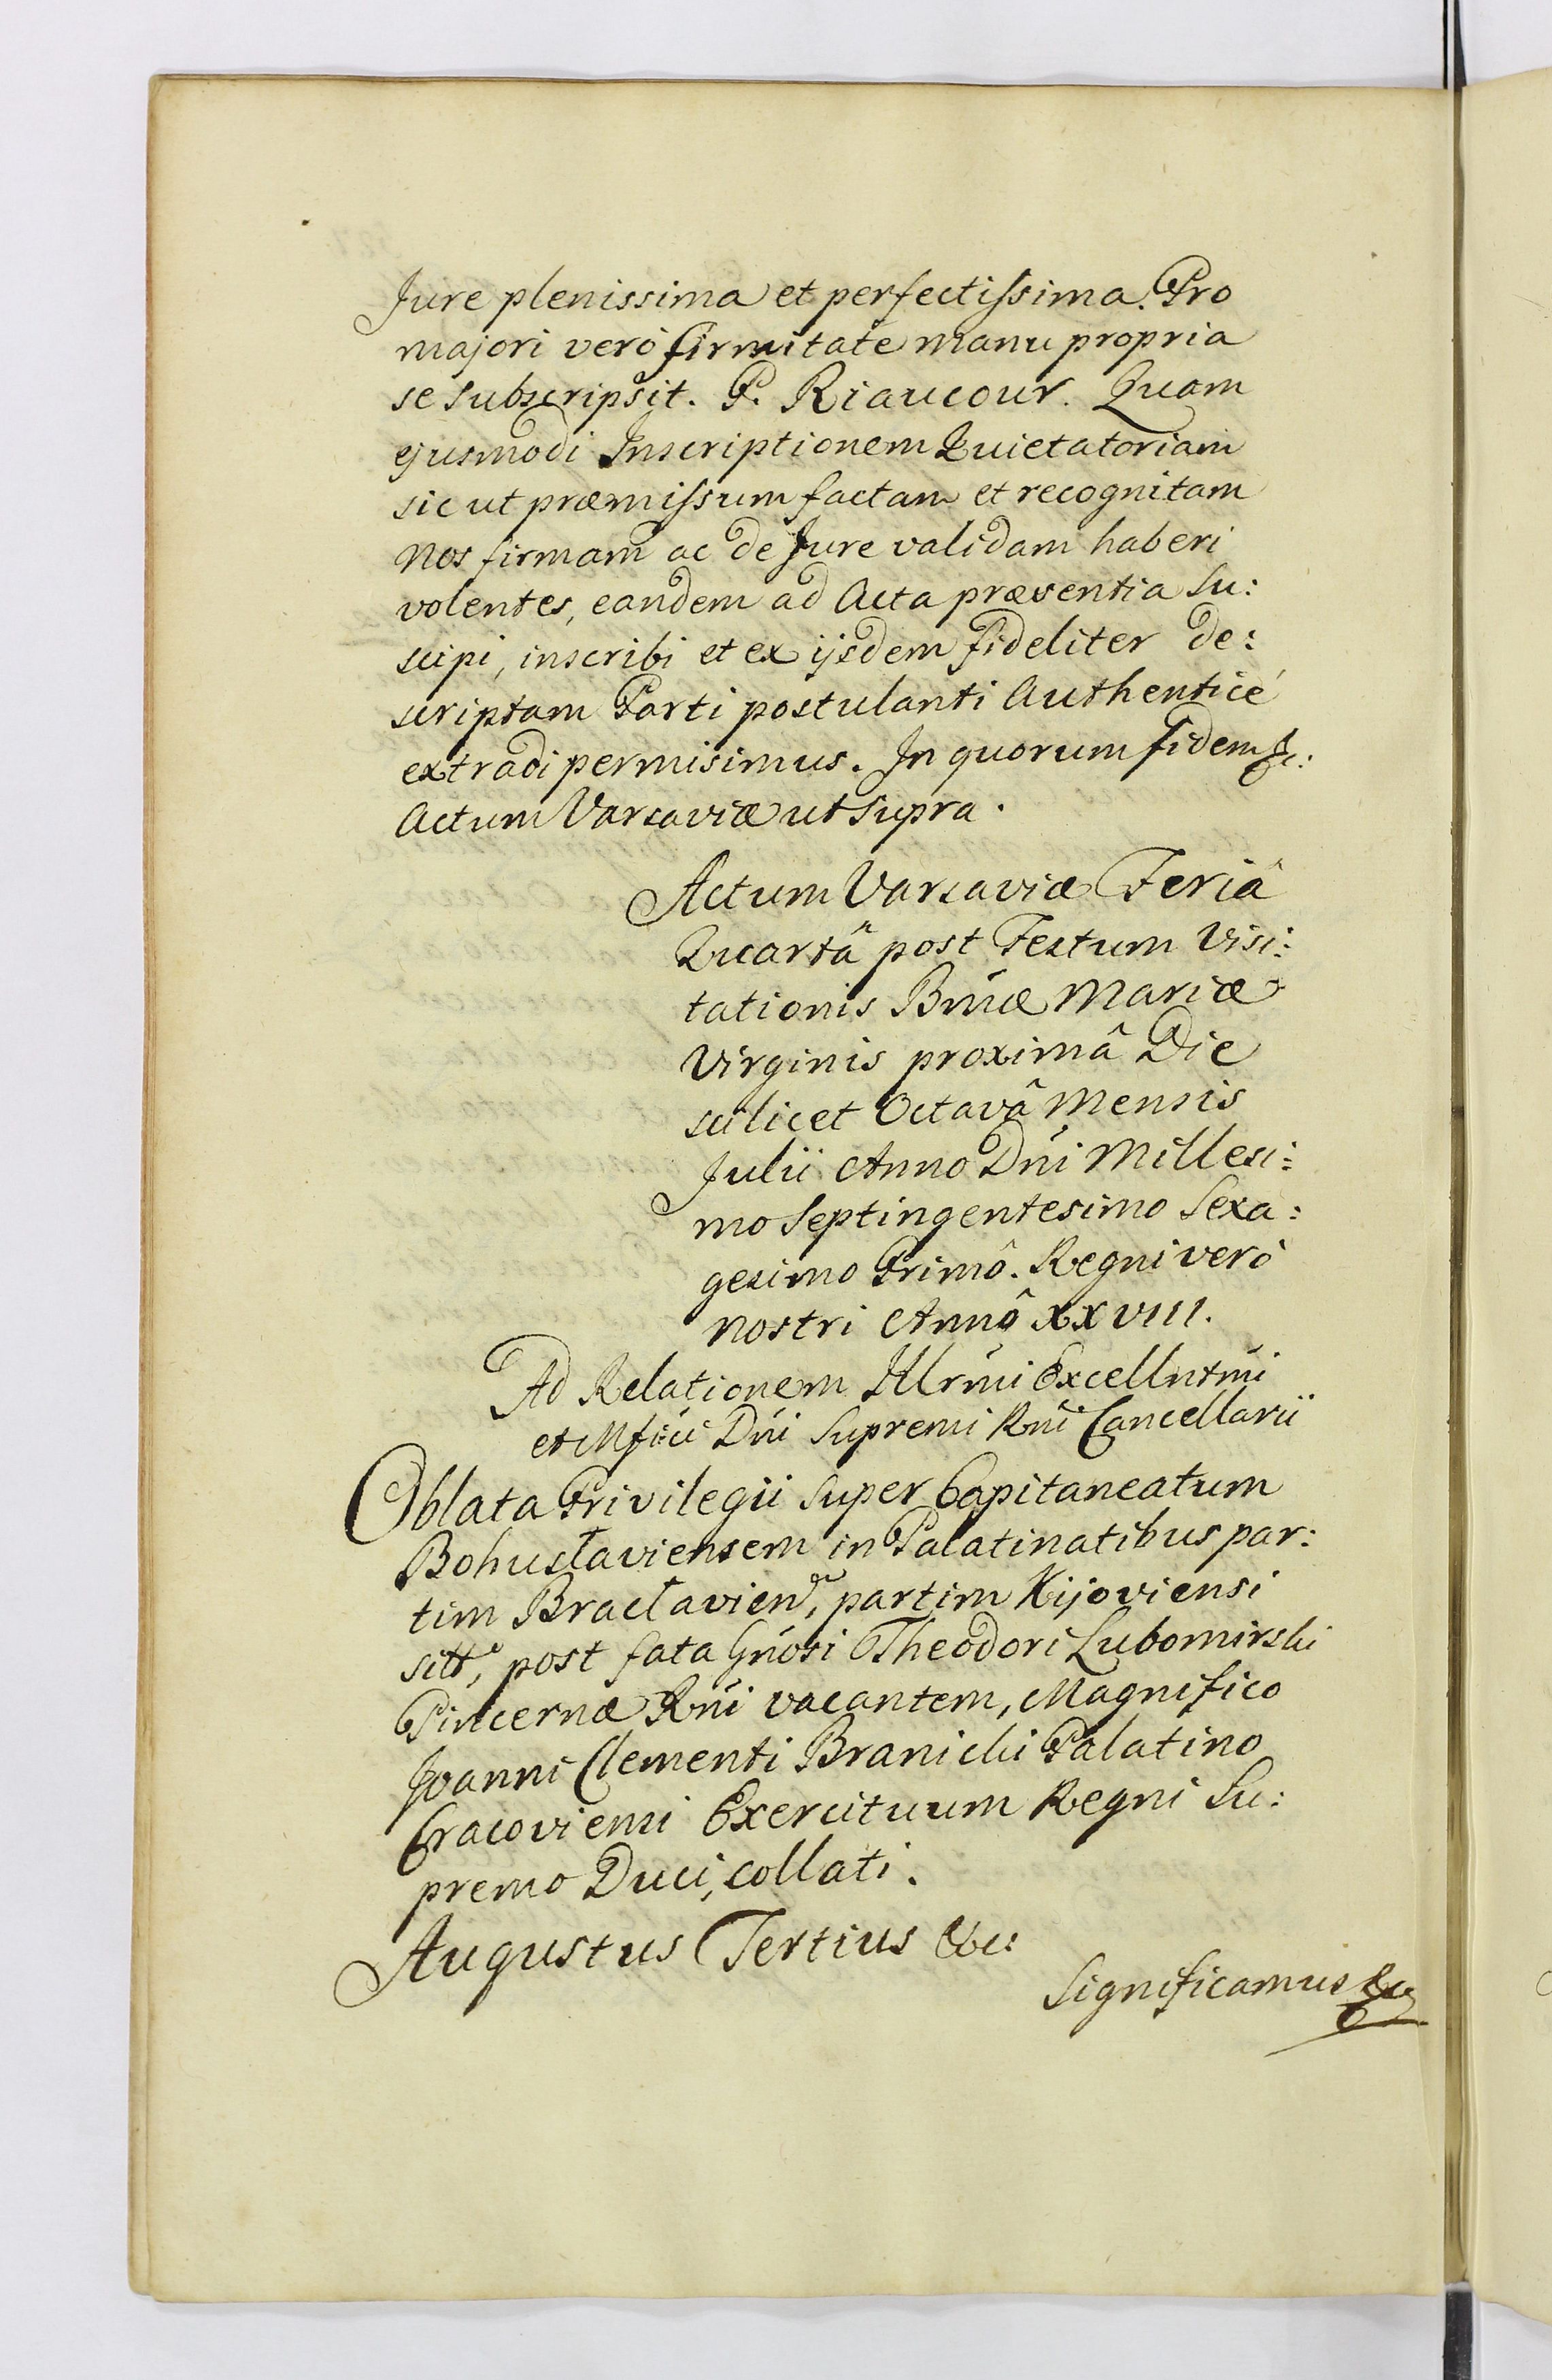 Jure plenissima et perfectissima. Pro
majori verò firmitate manu propria
se subscripsit. P. Riaucour. Quam
ejusmodi Inscriptionem Quietatoriam
sic ut præmissum factam et recognitam
Nos firmam ac de Jure validam haberi
volentes, eandem ad Acta præsentia Su:
scipi, inscribi et ex ijsdem fideliter de:
scriptam Parti postulanti Authenticè
extradi permisimus. In quorum fidem &c:
Actum Varsaviæ ut supra.
Actum Varsaviæ Feriâ
Quartâ post Festum Visi:
tationis Bmæ Mariæ
Virginis proximâ Die
scilicet Octavâ Mensis
Julii Anno Dni Millesi:
mo Septingentesimo Sexa:
gesimo Primô. Regni verò
nostri Annô XXVIII.
Ad Relationem Illrmi Excellntmi
et Mfici Dni Supremi Rni Cancellarii
Oblata Privilegii super Capitaneatum
Bohuslaviensem in Palatinatibus par:
tim Braclavien, partim Kijoviensi
sitt, post fata Gnosi Theodori Lubomirski
Pincernæ Rni vacantem, Magnifico
Joanni Clementi Branicki Palatino
Cracoviensi Exercituum Regni Su:
premo Duci, collati.
Augustus Tertius &c:
Significamus &c